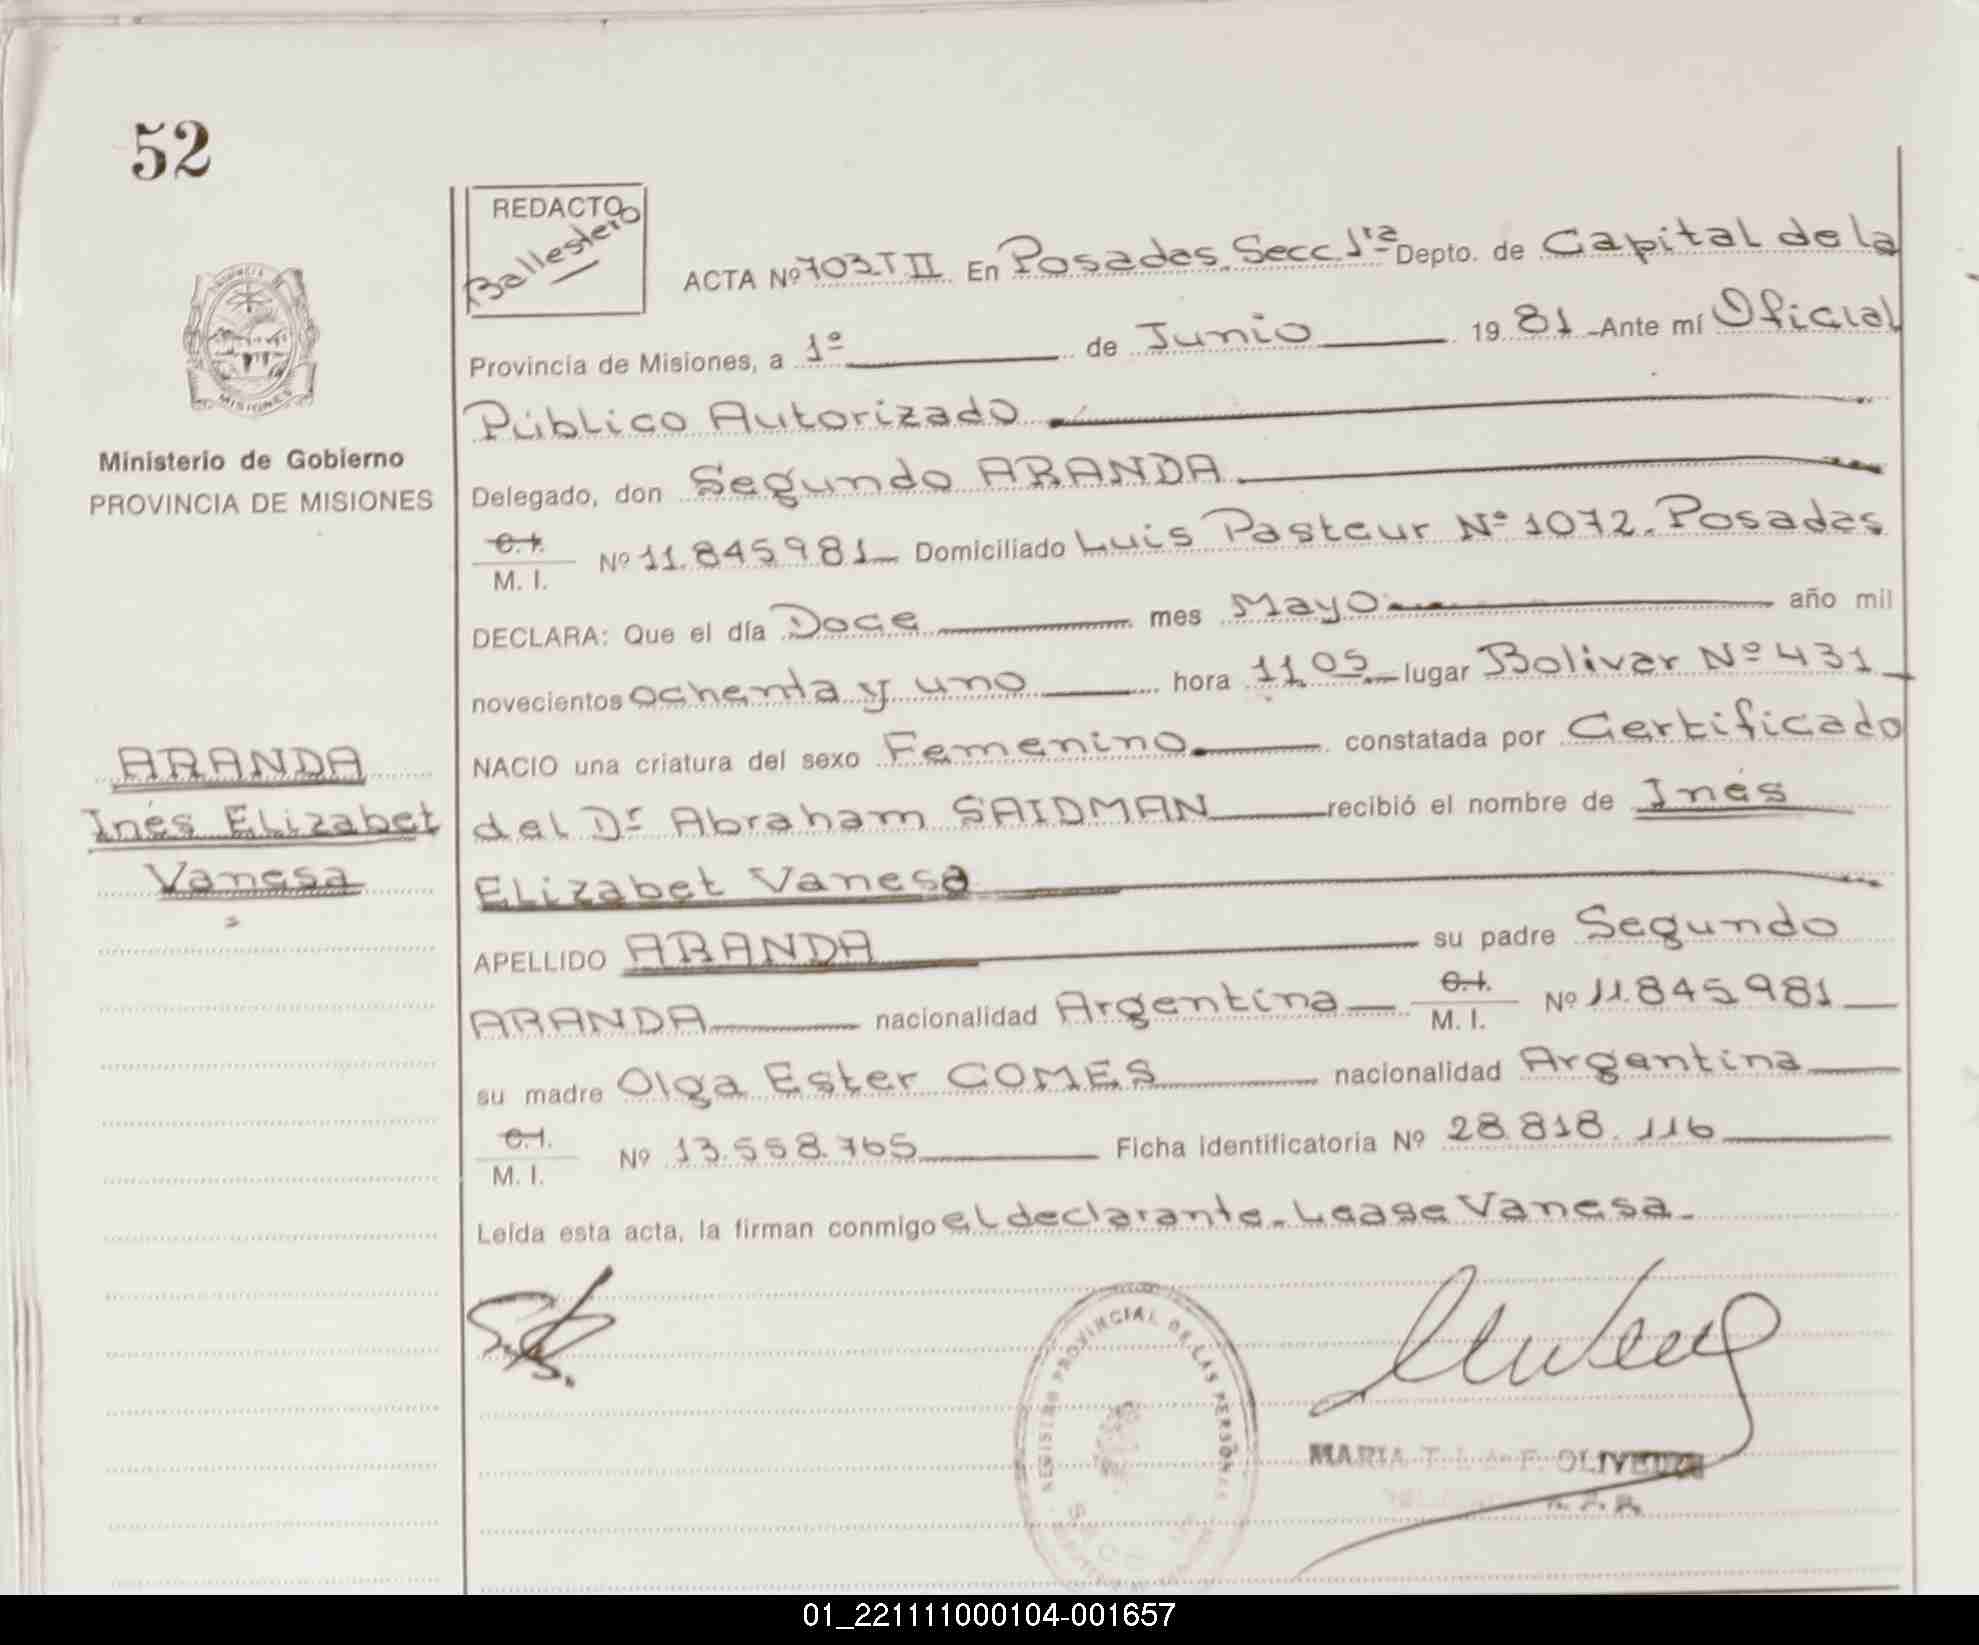 52
REDACTO
Ballestero
ACTA Nº 703 T II En Posadas. Secc. 1ra Depto. de Capital de la
Provincia de Misiones, a 1º de Junio 19 81 - Ante mí Oficial
Público Autorizado
Delegado, don Segundo ARANDA
C.I.
M. I. Nº 11.845981 Domiciliado Luis Pasteur Nº 1072. Posadas
DECLARA: Que el día Doce mes Mayo año mil
novecientos ochenta y uno hora 11.05 lugar Bolivar Nº 431
NACIO una criatura del sexo Femenino. constatada por Certificado
del Dr Abraham SAIDMAN recibió el nombre de Inés
Elizabet Vanesa
APELLIDO ARANDA su padre Segundo
ARANDA nacionalidad Argentina C.I.
M. I. Nº 11.845981
su madre Olga Ester GOMES nacionalidad Argentina
C.I.
M. I. Nº 13.558.765 Ficha identificatoria Nº 28.818.116
Leída esta acta, la firman conmigo el declarante. Lease Vanesa.
PROVINCIA
MISIONES
Ministerio de Gobierno
PROVINCIA DE MISIONES
ARANDA
Inés Elizabet
Vanesa
REGISTRO PROVINCIAL DE LAS PERSONAS
MARIA T. OLIVEIRA
01_221111000104-001657